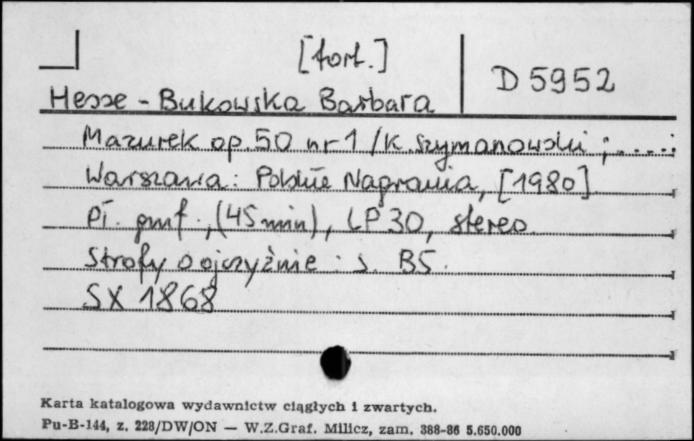 [fort.]
D 5952
Hesse - Bukowska Barbara
Mazurek op. 50 nr 1 / K. Szymanowski ; .....
Warszawa : Polskie Nagrania, [1980]
Pł. gmf., (45 min), LP 30, stereo.
Strofy o ojczyźnie : s. B5.
SX 1868
Karta katalogowa wydawnictw ciągłych i zwartych.
Pu-B-144, z. 228/DW/ON — W.Z.Graf. Milicz, zam. 388-86 5.650.000